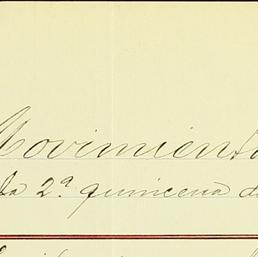 Movimiento
la 2ª quincena de